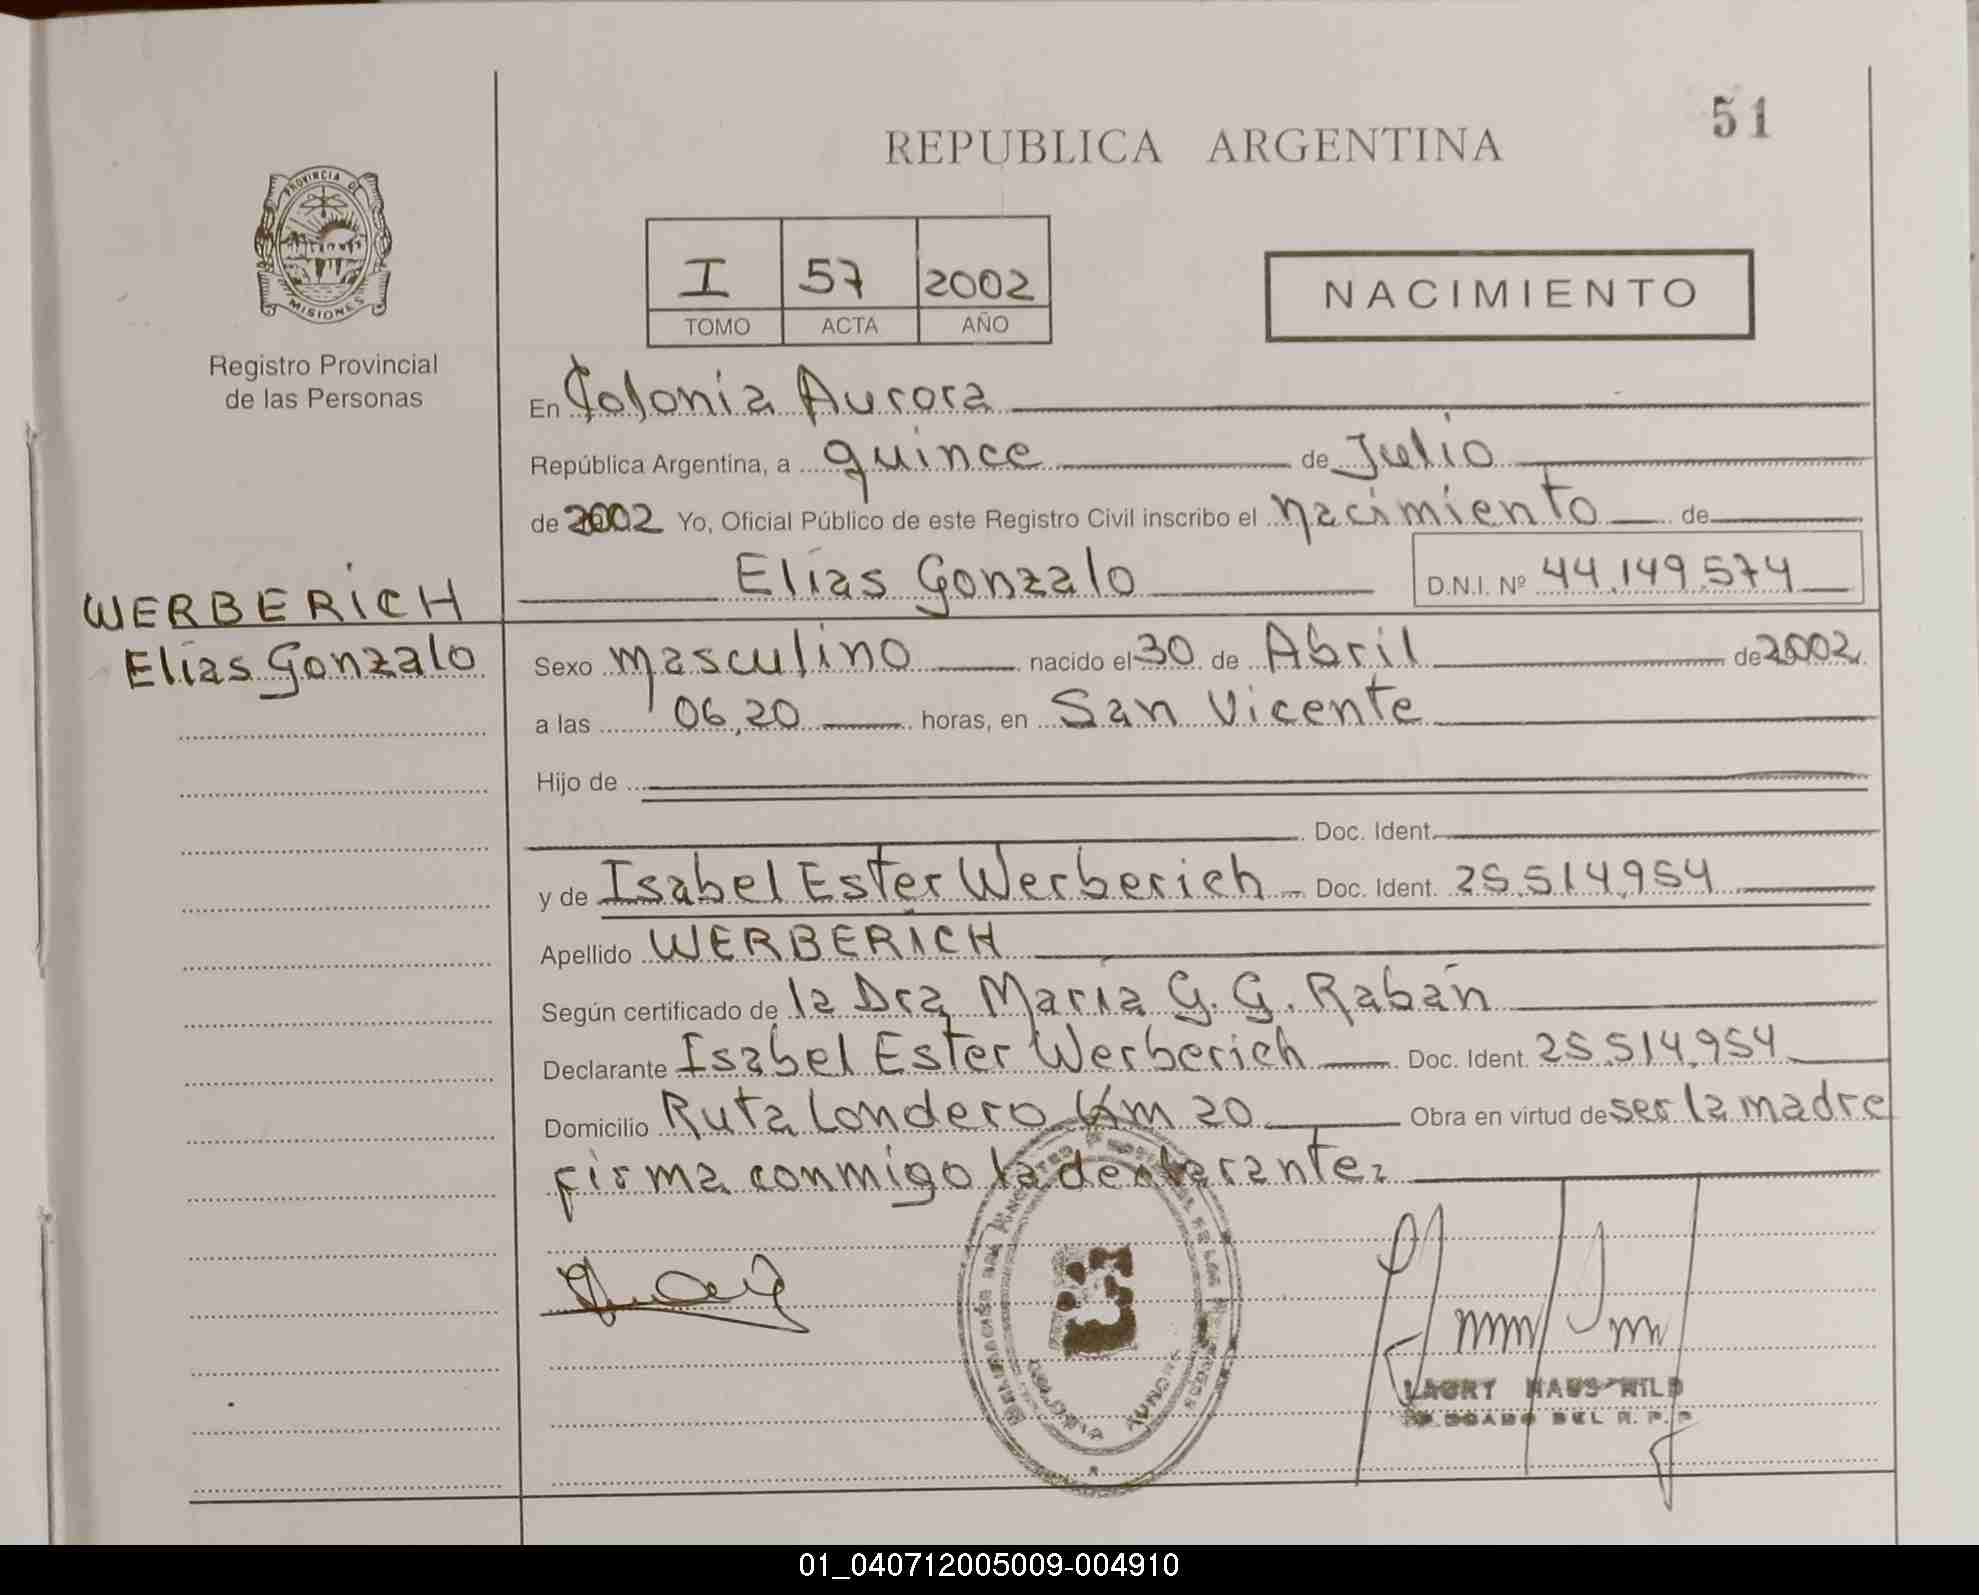 51
REPUBLICA ARGENTINA
PROVINCIA DE
MISIONES
Registro Provincial
de las Personas
I 57 2002
TOMO ACTA AÑO
NACIMIENTO
En Colonia Aurora
República Argentina, a quince de Julio
de 2002 Yo, Oficial Público de este Registro Civil inscribo el nacimiento de
Elías Gonzalo D.N.I. Nº 44.149.574
WERBERICH
Elías Gonzalo
Sexo masculino nacido el 30 de Abril de 2002
a las 06,20 horas, en San Vicente
Hijo de
Doc. Ident.
y de Isabel Ester Werberich Doc. Ident. 25.514.954
Apellido WERBERICH
Según certificado de la Dra María G. G. Rabán
Declarante Isabel Ester Werberich Doc. Ident. 25.514.954
Domicilio Ruta Londero Km 20 Obra en virtud de ser la madre
firma conmigo la declarante
COLONIA AURORA
DEL R. P. P.
01_040712005009-004910